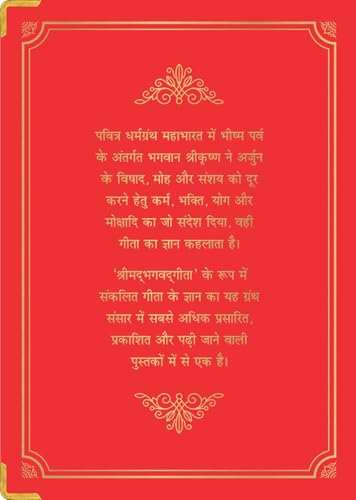 पवित्र धर्मग्रंथ महाभारत में भीष्म पर्व
के अंतर्गत भगवान श्रीकृष्ण ने अर्जुन
के विषाद, मोह और संशय को दूर
करने हेतु कर्म, भक्ति, योग और
मोक्षादि का जो संदेश दिया, वही
गीता का ज्ञान कहलाता है।
'श्रीमद्‌भगवद्‌गीता' के रूप में
संकलित गीता के ज्ञान का यह ग्रंथ
संसार में सबसे अधिक प्रसारित,
प्रकाशित और पढ़ी जाने वाली
पुस्तकों में से एक है।